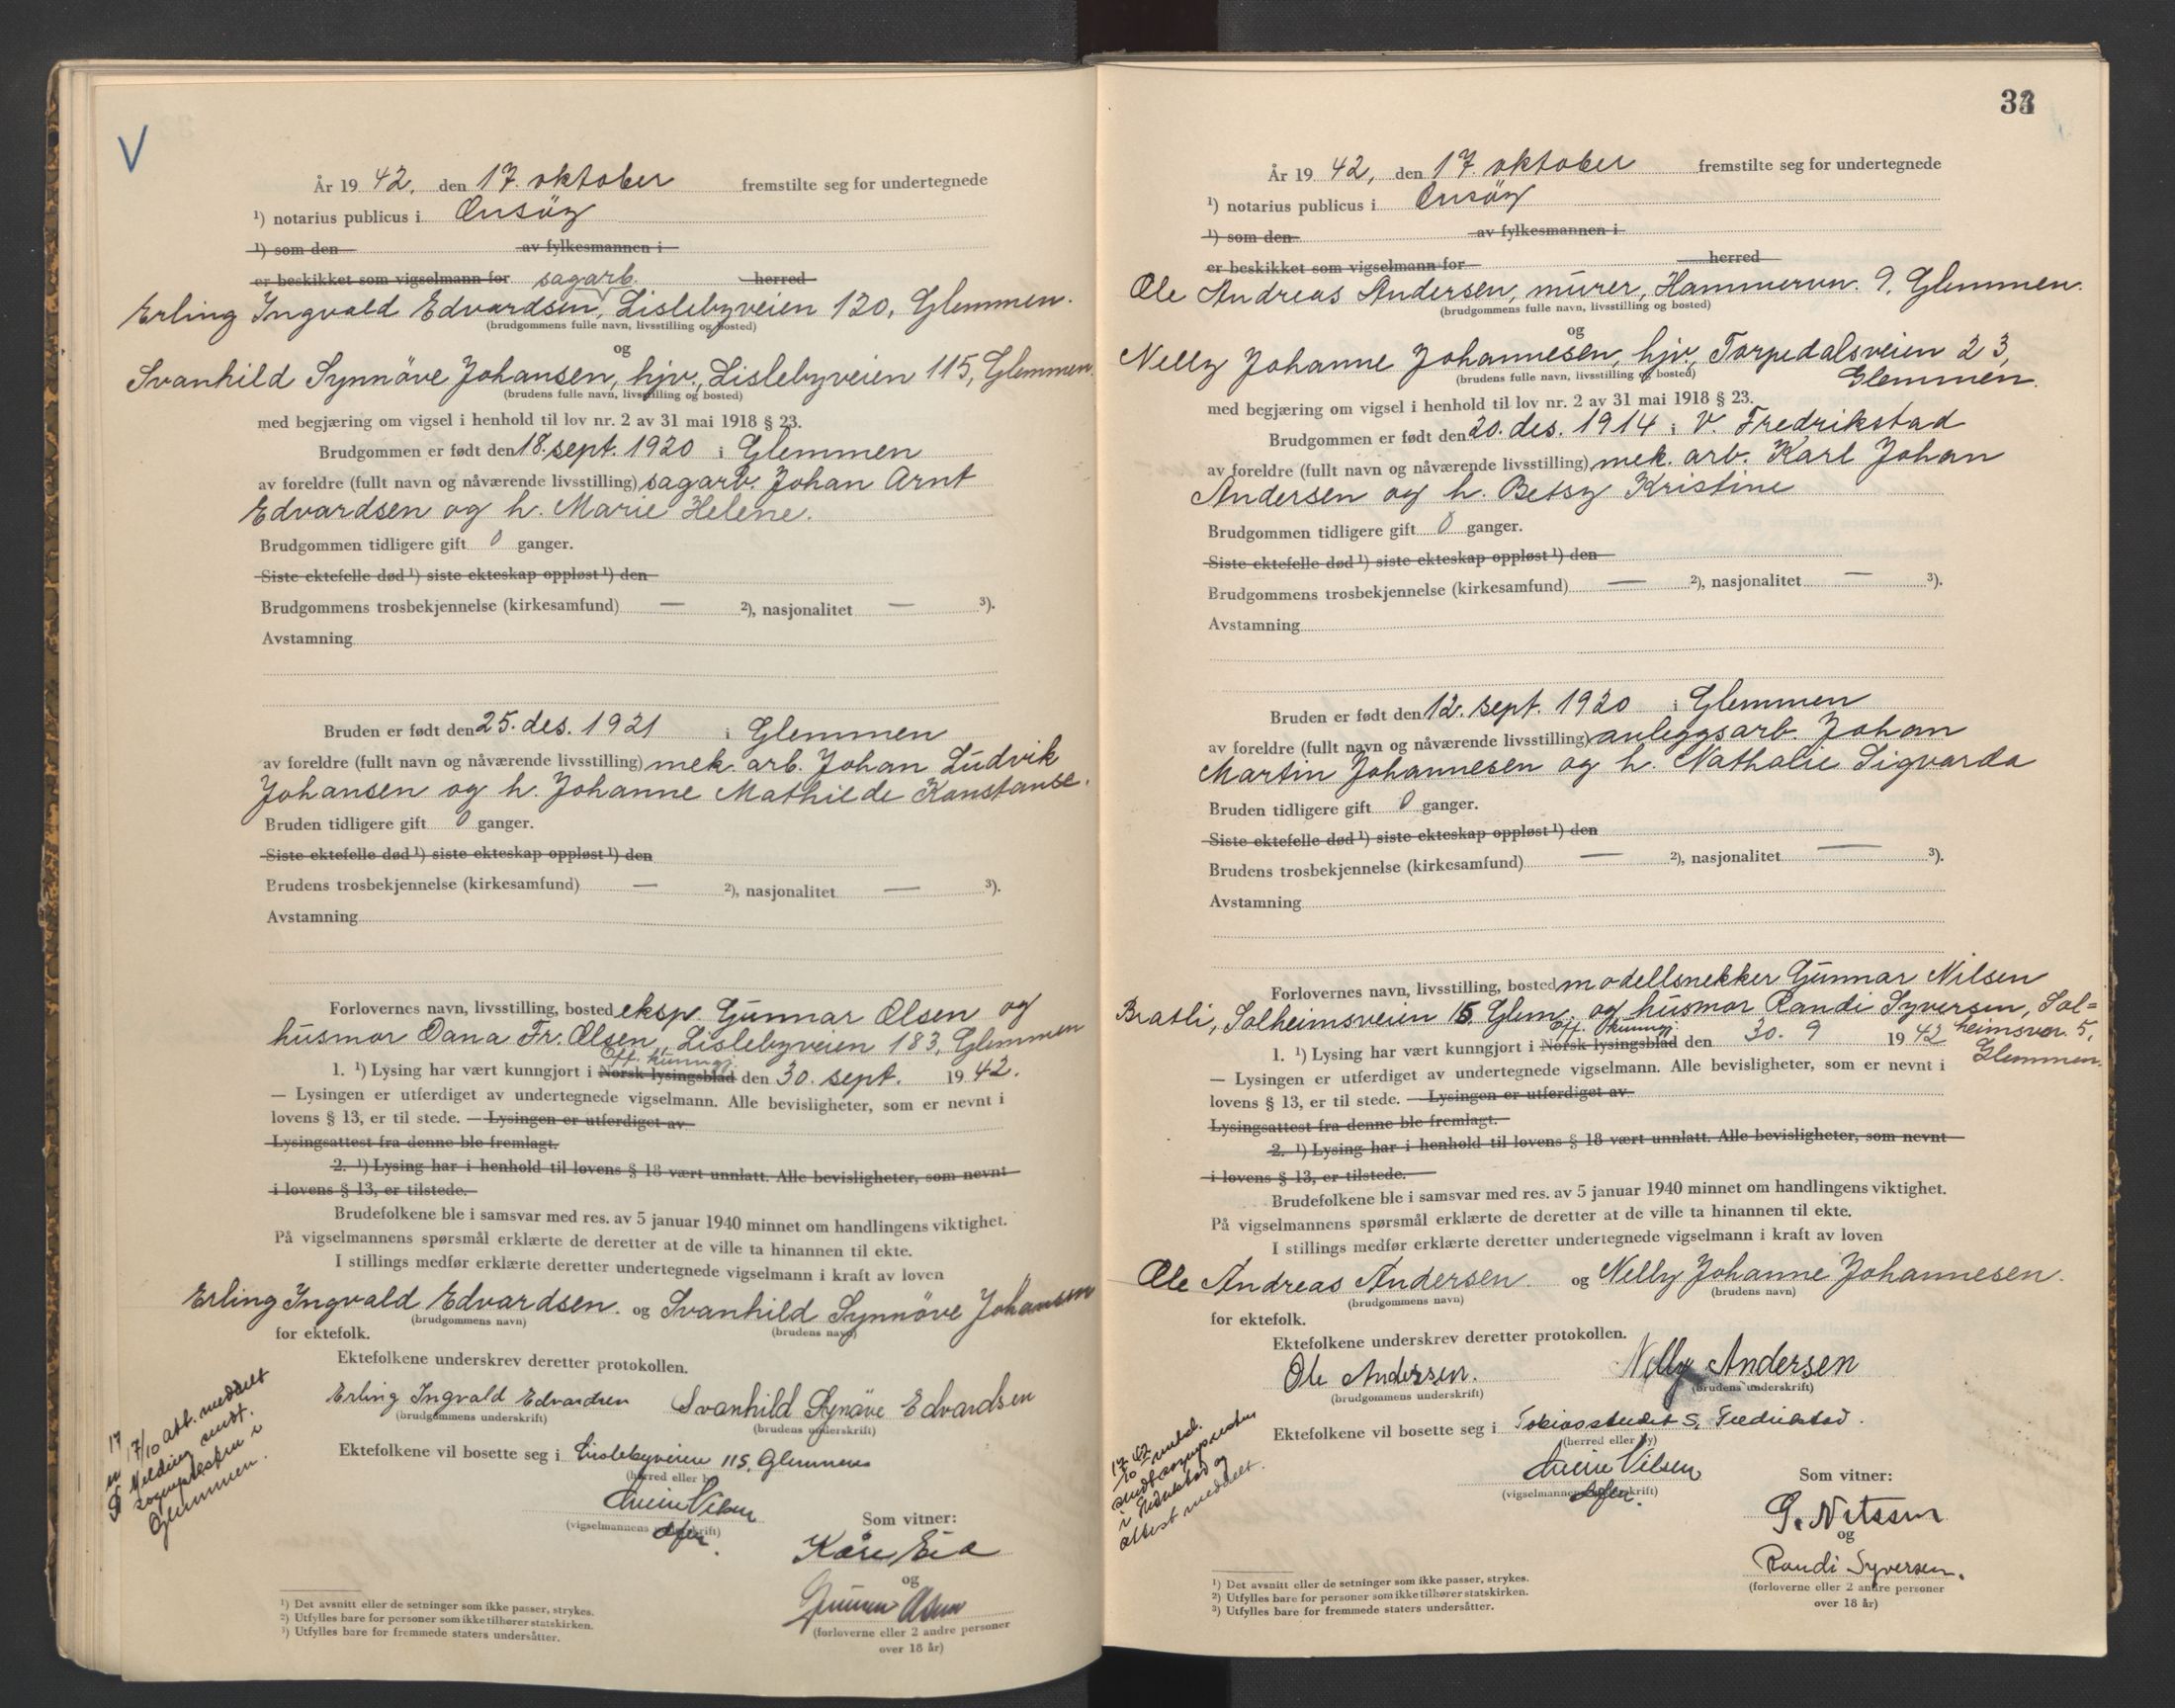 V
År 19 42. den 17. oktober fremstilte seg for undertegnede
¹) notarius publicus i Onsöy
¹) som den av fylkesmannen i
er beskikket som vigselmann for sagarb. herred
Erling Ingvald Edvardsen, Lislebyveien 120, Glemmen.
(brudgommens fulle navn, livsstilling og bosted)
og
Svanhild Synnöve Johansen, hjv., Lislebyveien 115, Glemmen
(brudens fulle navn, livsstilling og bosted)
med begjæring om vigsel i henhold til lov nr. 2 av 31 mai 1918 § 23.
Brudgommen er født den 18. sept. 1920 i Glemmen
av foreldre (fullt navn og nåværende livsstilling) sagarb. Johan Arnt
Edvardsen og h. Marie Helene.
Brudgommen tidligere gift 0 ganger.
Siste ektefelle død ¹) siste ekteskap oppløst ¹) den
Brudgommens trosbekjennelse (kirkesamfund) — ²), nasjonalitet — ³).
Avstamning
Bruden er født den 25. des. 1921 i Glemmen
av foreldre (fullt navn og nåværende livsstilling) mek. arb. Johan Ludvik
Johansen og h. Johanne Mathilde Konstanse.
Bruden tidligere gift 0 ganger.
Siste ektefelle død ¹) siste ekteskap oppløst ¹) den
Brudens trosbekjennelse (kirkesamfund) — ²), nasjonalitet — ³).
Avstamning
Forlovernes navn, livsstilling, bosted eksp. Gunnar Olsen og
husmor Dana Fr. Olsen, Lislebyveien 183, Glemmen
Off. kunngj.
1. ¹) Lysing har vært kunngjort i Norsk lysingsblad den 30. sept. 19 42.
— Lysingen er utferdiget av undertegnede vigselmann. Alle bevisligheter, som er nevnt i
lovens § 13, er til stede. — Lysingen er utferdiget av
Lysingsattest fra denne ble fremlagt.
2. ¹) Lysing har i henhold til lovens § 18 vært unnlatt. Alle bevisligheter, som nevnt
i lovens § 13, er tilstede.
Brudefolkene ble i samsvar med res. av 5 januar 1940 minnet om handlingens viktighet.
På vigselmannens spørsmål erklærte de deretter at de ville ta hinannen til ekte.
I stillings medfør erklærte deretter undertegnede vigselmann i kraft av loven
Erling Ingvald Edvardsen. og Svanhild Synnöve Johansen
(brudgommens navn) (brudens navn)
for ektefolk.
Ektefolkene underskrev deretter protokollen.
Erling Ingvald Edvardsen Svanhild Synöve Edvardsen
(brudgommens underskrift) (brudens underskrift)
Ektefolkene vil bosette seg i Lislebyveien 115, Glemmen
(herred eller by)
17/10 att. meddelt
Melding sendt.
sognepresten i
Glemmen.
Nilsen
(vigselmannens underskrift)
Som vitner:
Kåre Eia
og
Gunnar Olsen
(forloverne eller 2 andre personer
over 18 år)
¹) Det avsnitt eller de setninger som ikke passer, strykes.
²) Utfylles bare for personer som ikke tilhører statskirken.
³) Utfylles bare for fremmede staters undersåtter.
33
År 19 42, den 17. oktober fremstilte seg for undertegnede
¹) notarius publicus i Onsöy
¹) som den av fylkesmannen i
er beskikket som vigselmann for herred
Ole Andreas Andersen, murer, Hammervn. 9, Glemmen.
(brudgommens fulle navn, livsstilling og bosted)
og
Nelly Johanne Johannesen, hjv., Torpedalsveien 23,
(brudens fulle navn, livsstilling og bosted) Glemmen.
med begjæring om vigsel i henhold til lov nr. 2 av 31 mai 1918 § 23.
Brudgommen er født den 20. des. 1914 i V. Fredrikstad
av foreldre (fullt navn og nåværende livsstilling) mek. arb. Karl Johan
Andersen og h. Betsy Kristine
Brudgommen tidligere gift 0 ganger.
Siste ektefelle død ¹) siste ekteskap oppløst ¹) den
Brudgommens trosbekjennelse (kirkesamfund) — ²), nasjonalitet — ³).
Avstamning
Bruden er født den 12. sept. 1920 i Glemmen
av foreldre (fullt navn og nåværende livsstilling) anleggsarb. Johan
Martin Johannesen og h. Nathalie Sigvarda
Bruden tidligere gift 0 ganger.
Siste ektefelle død ¹) siste ekteskap oppløst ¹) den
Brudens trosbekjennelse (kirkesamfund) — ²), nasjonalitet — ³).
Avstamning
Forlovernes navn, livsstilling, bosted modellsnekker Gunnar Nilsen
Bratli, Solheimsveien 15, Glem. og husmor Randi Syversen, Sol=
Off. kunngj. heimsvn. 5,
1. ¹) Lysing har vært kunngjort i Norsk lysingsblad den 30. 9 19 42
Glemmen.
— Lysingen er utferdiget av undertegnede vigselmann. Alle bevisligheter, som er nevnt i
lovens § 13, er til stede. — Lysingen er utferdiget av
Lysingsattest fra denne ble fremlagt.
2. ¹) Lysing har i henhold til lovens § 18 vært unnlatt. Alle bevisligheter, som nevnt
i lovens § 13, er tilstede.
Brudefolkene ble i samsvar med res. av 5 januar 1940 minnet om handlingens viktighet.
På vigselmannens spørsmål erklærte de deretter at de ville ta hinannen til ekte.
I stillings medfør erklærte deretter undertegnede vigselmann i kraft av loven
Ole Andreas Andersen. og Nelly Johanne Johannesen.
(brudgommens navn) (brudens navn)
for ektefolk.
Ektefolkene underskrev deretter protokollen.
Ole Andersen. Nelly Andersen
(brudgommens underskrift) (brudens underskrift)
Ektefolkene vil bosette seg i Fredrikstad.
(herred eller by)
17/10 42 meld.
sendt sognepresten
i Fredrikstad og
attest meddelt.
Nilsen
(vigselmannens underskrift)
Som vitner:
G. Nilsen
og
Randi Syversen.
(forloverne eller 2 andre personer
over 18 år)
¹) Det avsnitt eller de setninger som ikke passer, strykes.
²) Utfylles bare for personer som ikke tilhører statskirken.
³) Utfylles bare for fremmede staters undersåtter.